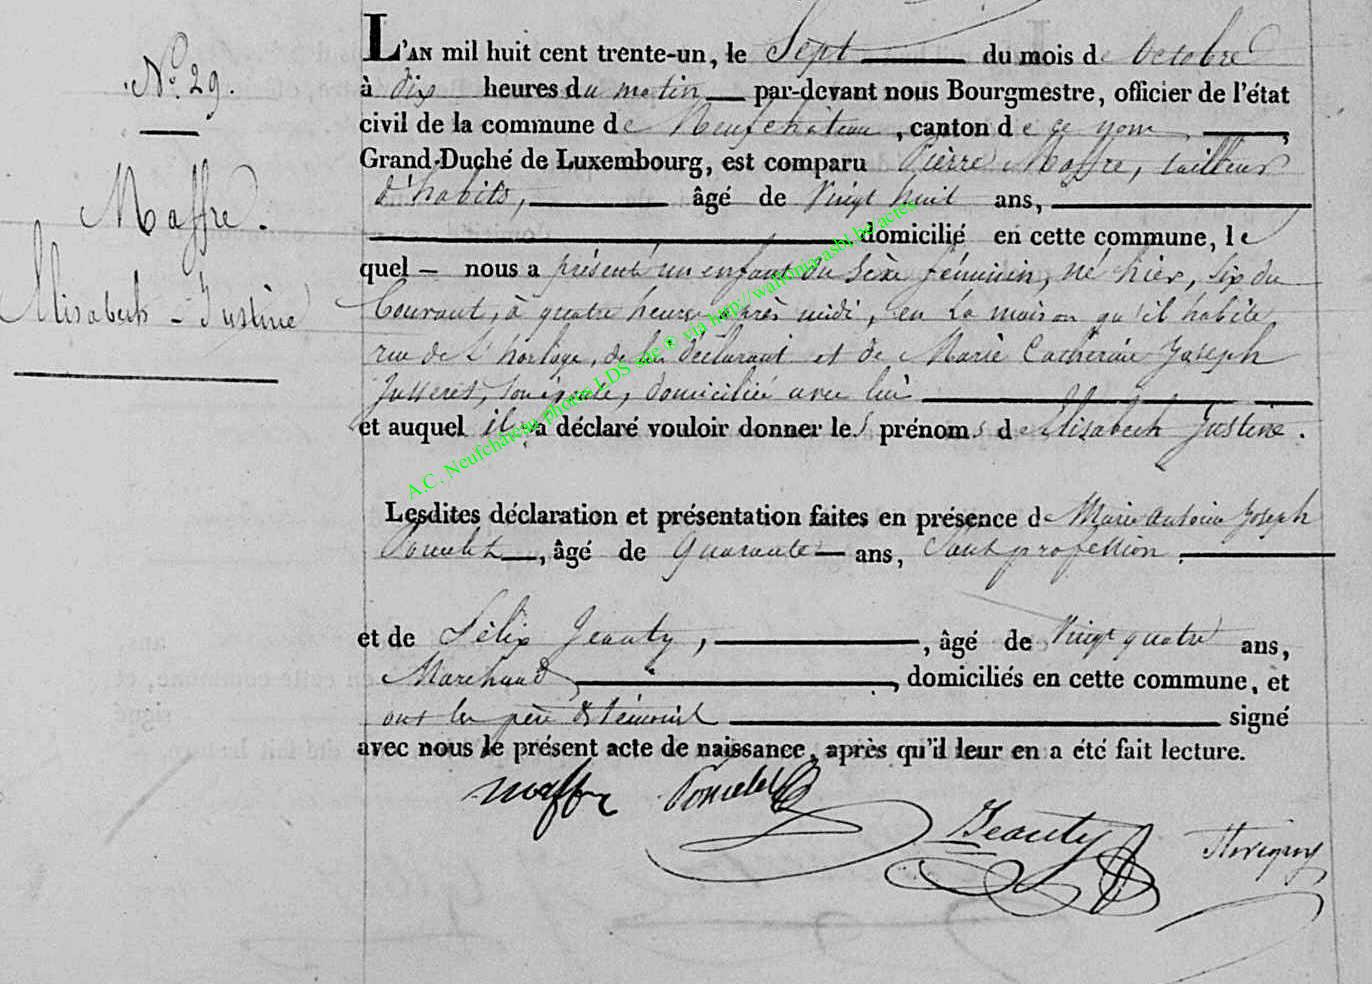 N.º 29.
Maffre.
Elisabeth - Justine
L'AN mil huit cent trente-un, le Sept du mois de Octobre
à dix heures du matin par-devant nous Bourgmestre, officier de l'état
civil de la commune de Neufchâteau, canton de ce nom,
Grand-Duché de Luxembourg, est comparu Pierre Maffre, tailleur
d'habits, âgé de Vingt huit ans,
domicilié en cette commune, le
quel nous a présenté un enfant du sèxe féminin, né hier, six du
Courant, à quatre heures après midi, en la maison qu'il habite
rue de l'horloge, de lui déclarant et de Marie Catherine Joseph
son épouse, domiciliée avec lui
et auquel il a déclaré vouloir donner les prénoms de Elisabeth Justine.
Lesdites déclaration et présentation faites en présence de Marie Antoine Joseph
Poncelet, âgé de Quarante ans, Sans profession.
et de Félix Jeanty, , âgé de Vingt quatre ans,
Marchand, , domiciliés en cette commune, et
ont les père & témoins signé
avec nous le présent acte de naissance, après qu'il leur en a été fait lecture.
Maffre Poncelet
Jeanty
A.C. Neufchâteau photos LDS site © via http://wallonia-asbl.be/actes